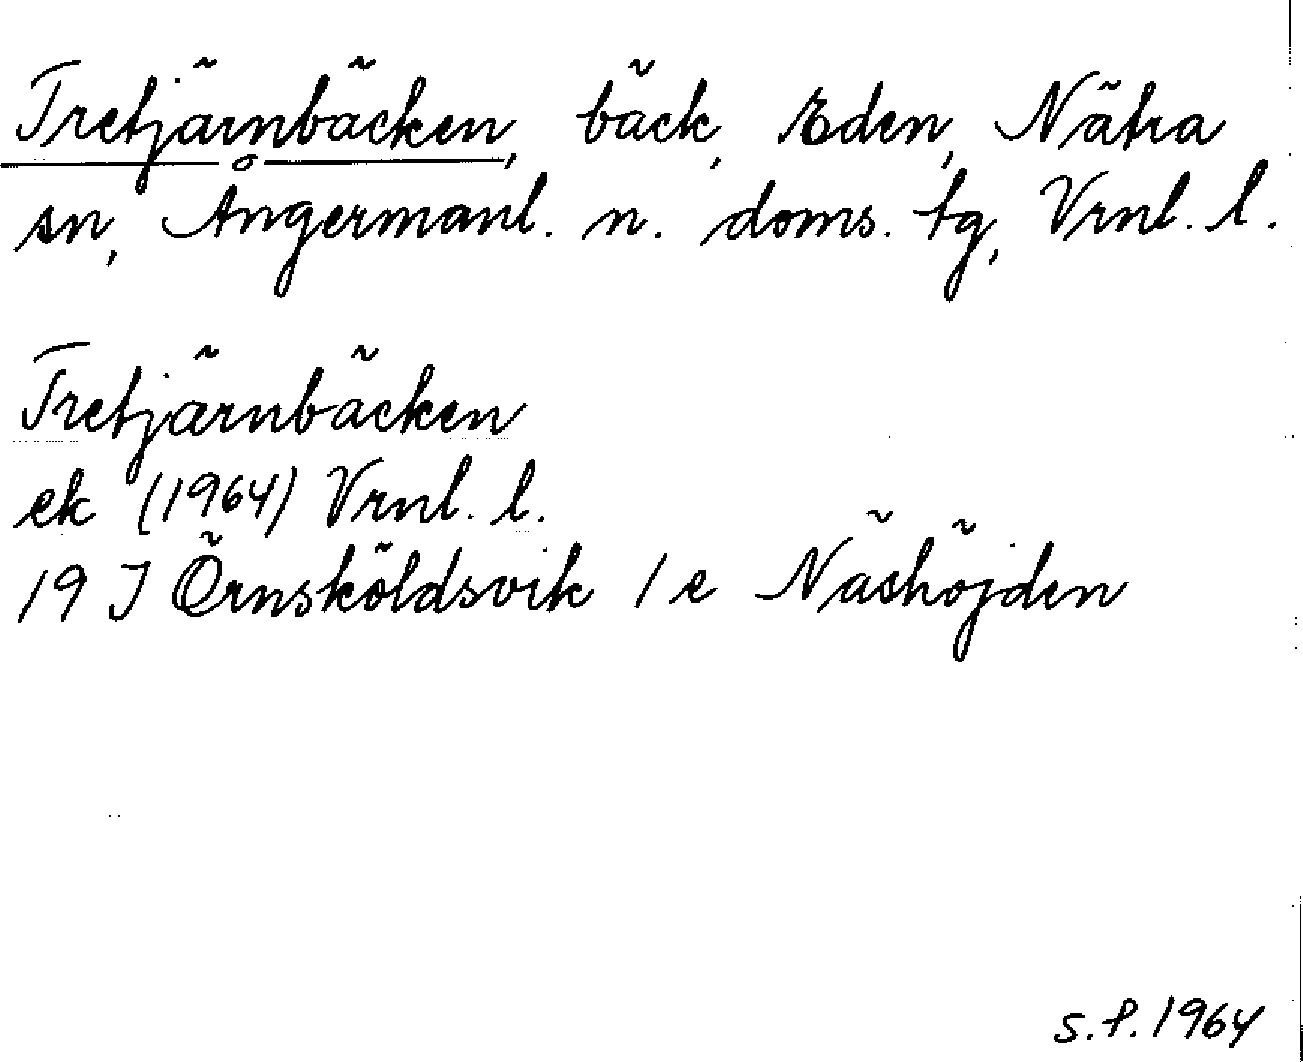 Tretjärnbäcken, bäck, Eden, Nätra
sn, Ångermanl. n. doms. tg, Vrnl. l.
Tretjärnbäcken
ek (1964) Vrnl. l.
19 J Örnsköldsvik 1 e Näshöjden
S.P. 1964